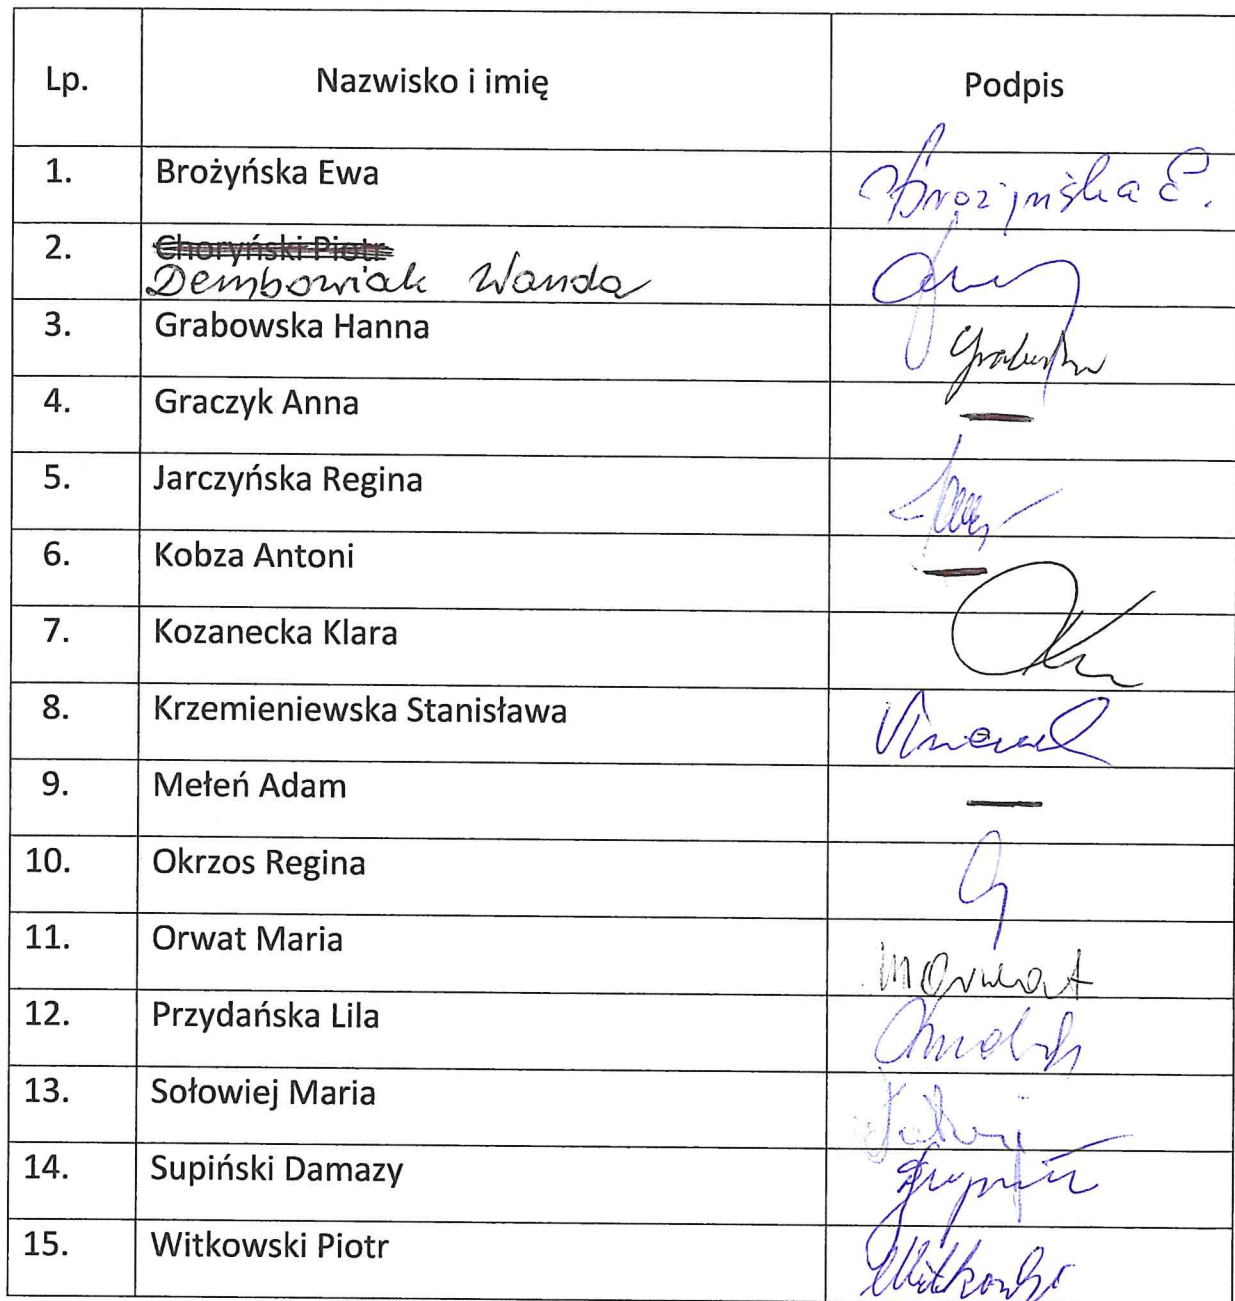 Lp. Nazwisko i imię Podpis
1. Brożyńska Ewa Brożyńska E.
2. Choryński Piotr
Dembowiak Wanda
3. Grabowska Hanna
4. Graczyk Anna —
5. Jarczyńska Regina
6. Kobza Antoni —
7. Kozanecka Klara
8. Krzemieniewska Stanisława
9. Mełeń Adam —
10. Okrzos Regina
11. Orwat Maria M Orwat
12. Przydańska Lila
13. Sołowiej Maria
14. Supiński Damazy
15. Witkowski Piotr Witkowski